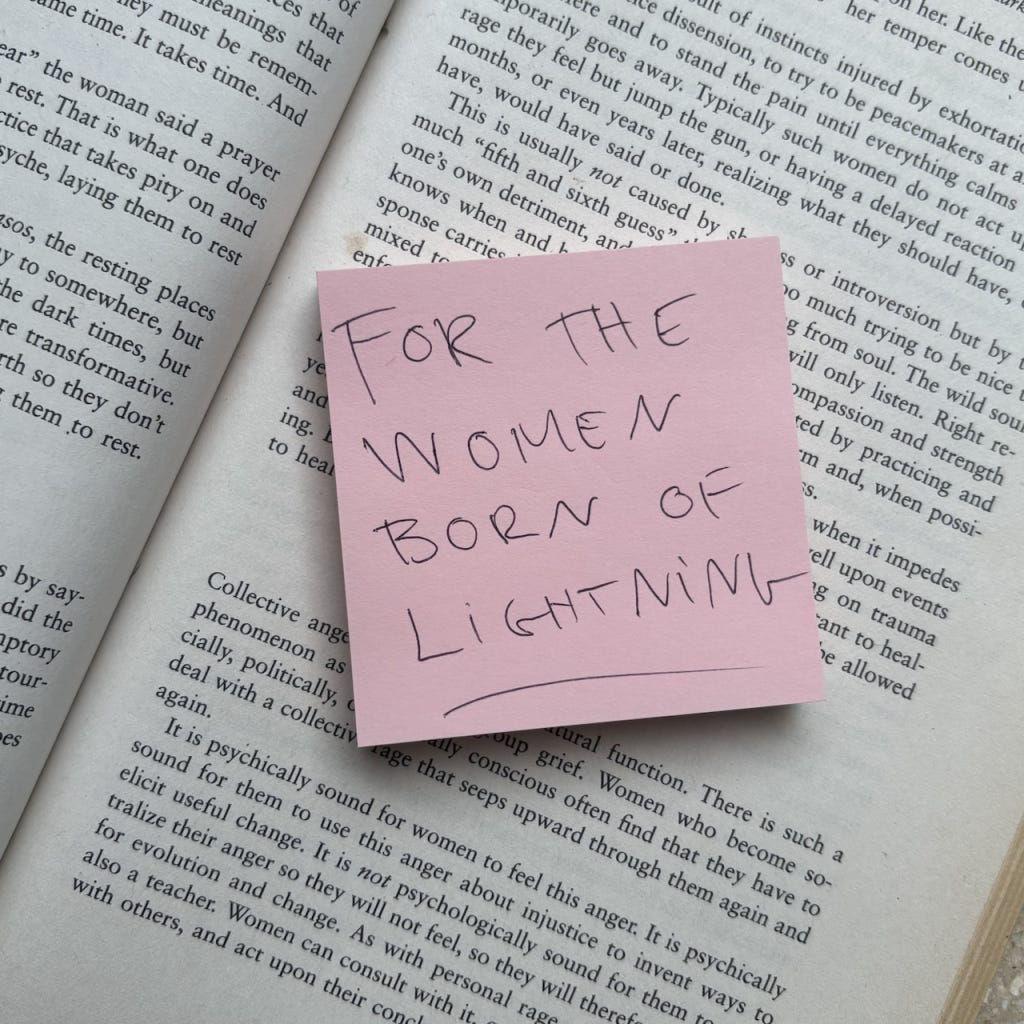 of
ces that
neanings that
hey must be remem-
ame time. It takes time. And
ear” the woman said a prayer
rest. That is what one does
ctice that takes pity on and
syche, laying them to rest
sos, the resting places
y to somewhere, but
he dark times, but
re transformative.
rth so they don’t
them to rest.
s by say-
did the
mptory
tour-
ime
oes
on her. Like the
her temper comes
ult of instincts injured by exhortatio
ce dissension, to try to be peacemakers at a
ere and to stand the pain until everything calms
porarily goes away. Typically such women do not act u
rage they feel but jump the gun, or having a delayed reaction
months, or even years later, realizing what they should have,
have, would have said or done.
This is usually not caused by sh ss or introversion but by t
much “fifth and sixth guess” oo much trying to be nice
one’s own detriment, and g from soul. The wild sou
knows when and vill only listen. Right re-
sponse carries ompassion and strength
mixed to ed by practicing and
enfo rm and, when possi-
ss.
when it impedes
ye ell upon events
and g on trauma
ing. tant to heal-
to heal be allowed
FOR THE
WOMEN
BORN OF
LiGHTNiNG
Collective ange atural function. There is such a
phenomenon as roup grief. Women who become so-
cially, politically, ally conscious often find that they have to
deal with a collective rage that seeps upward through them again and
again.
It is psychically sound for women to feel this anger. It is psychically
sound for them to use this anger about injustice to invent ways to
elicit useful change. It is not psychologically sound for them to
tralize their anger so they will not feel, so they will therefo
for evolution and change. As with personal rage
also a teacher. Women can consult with it,
with others, and act upon their concl